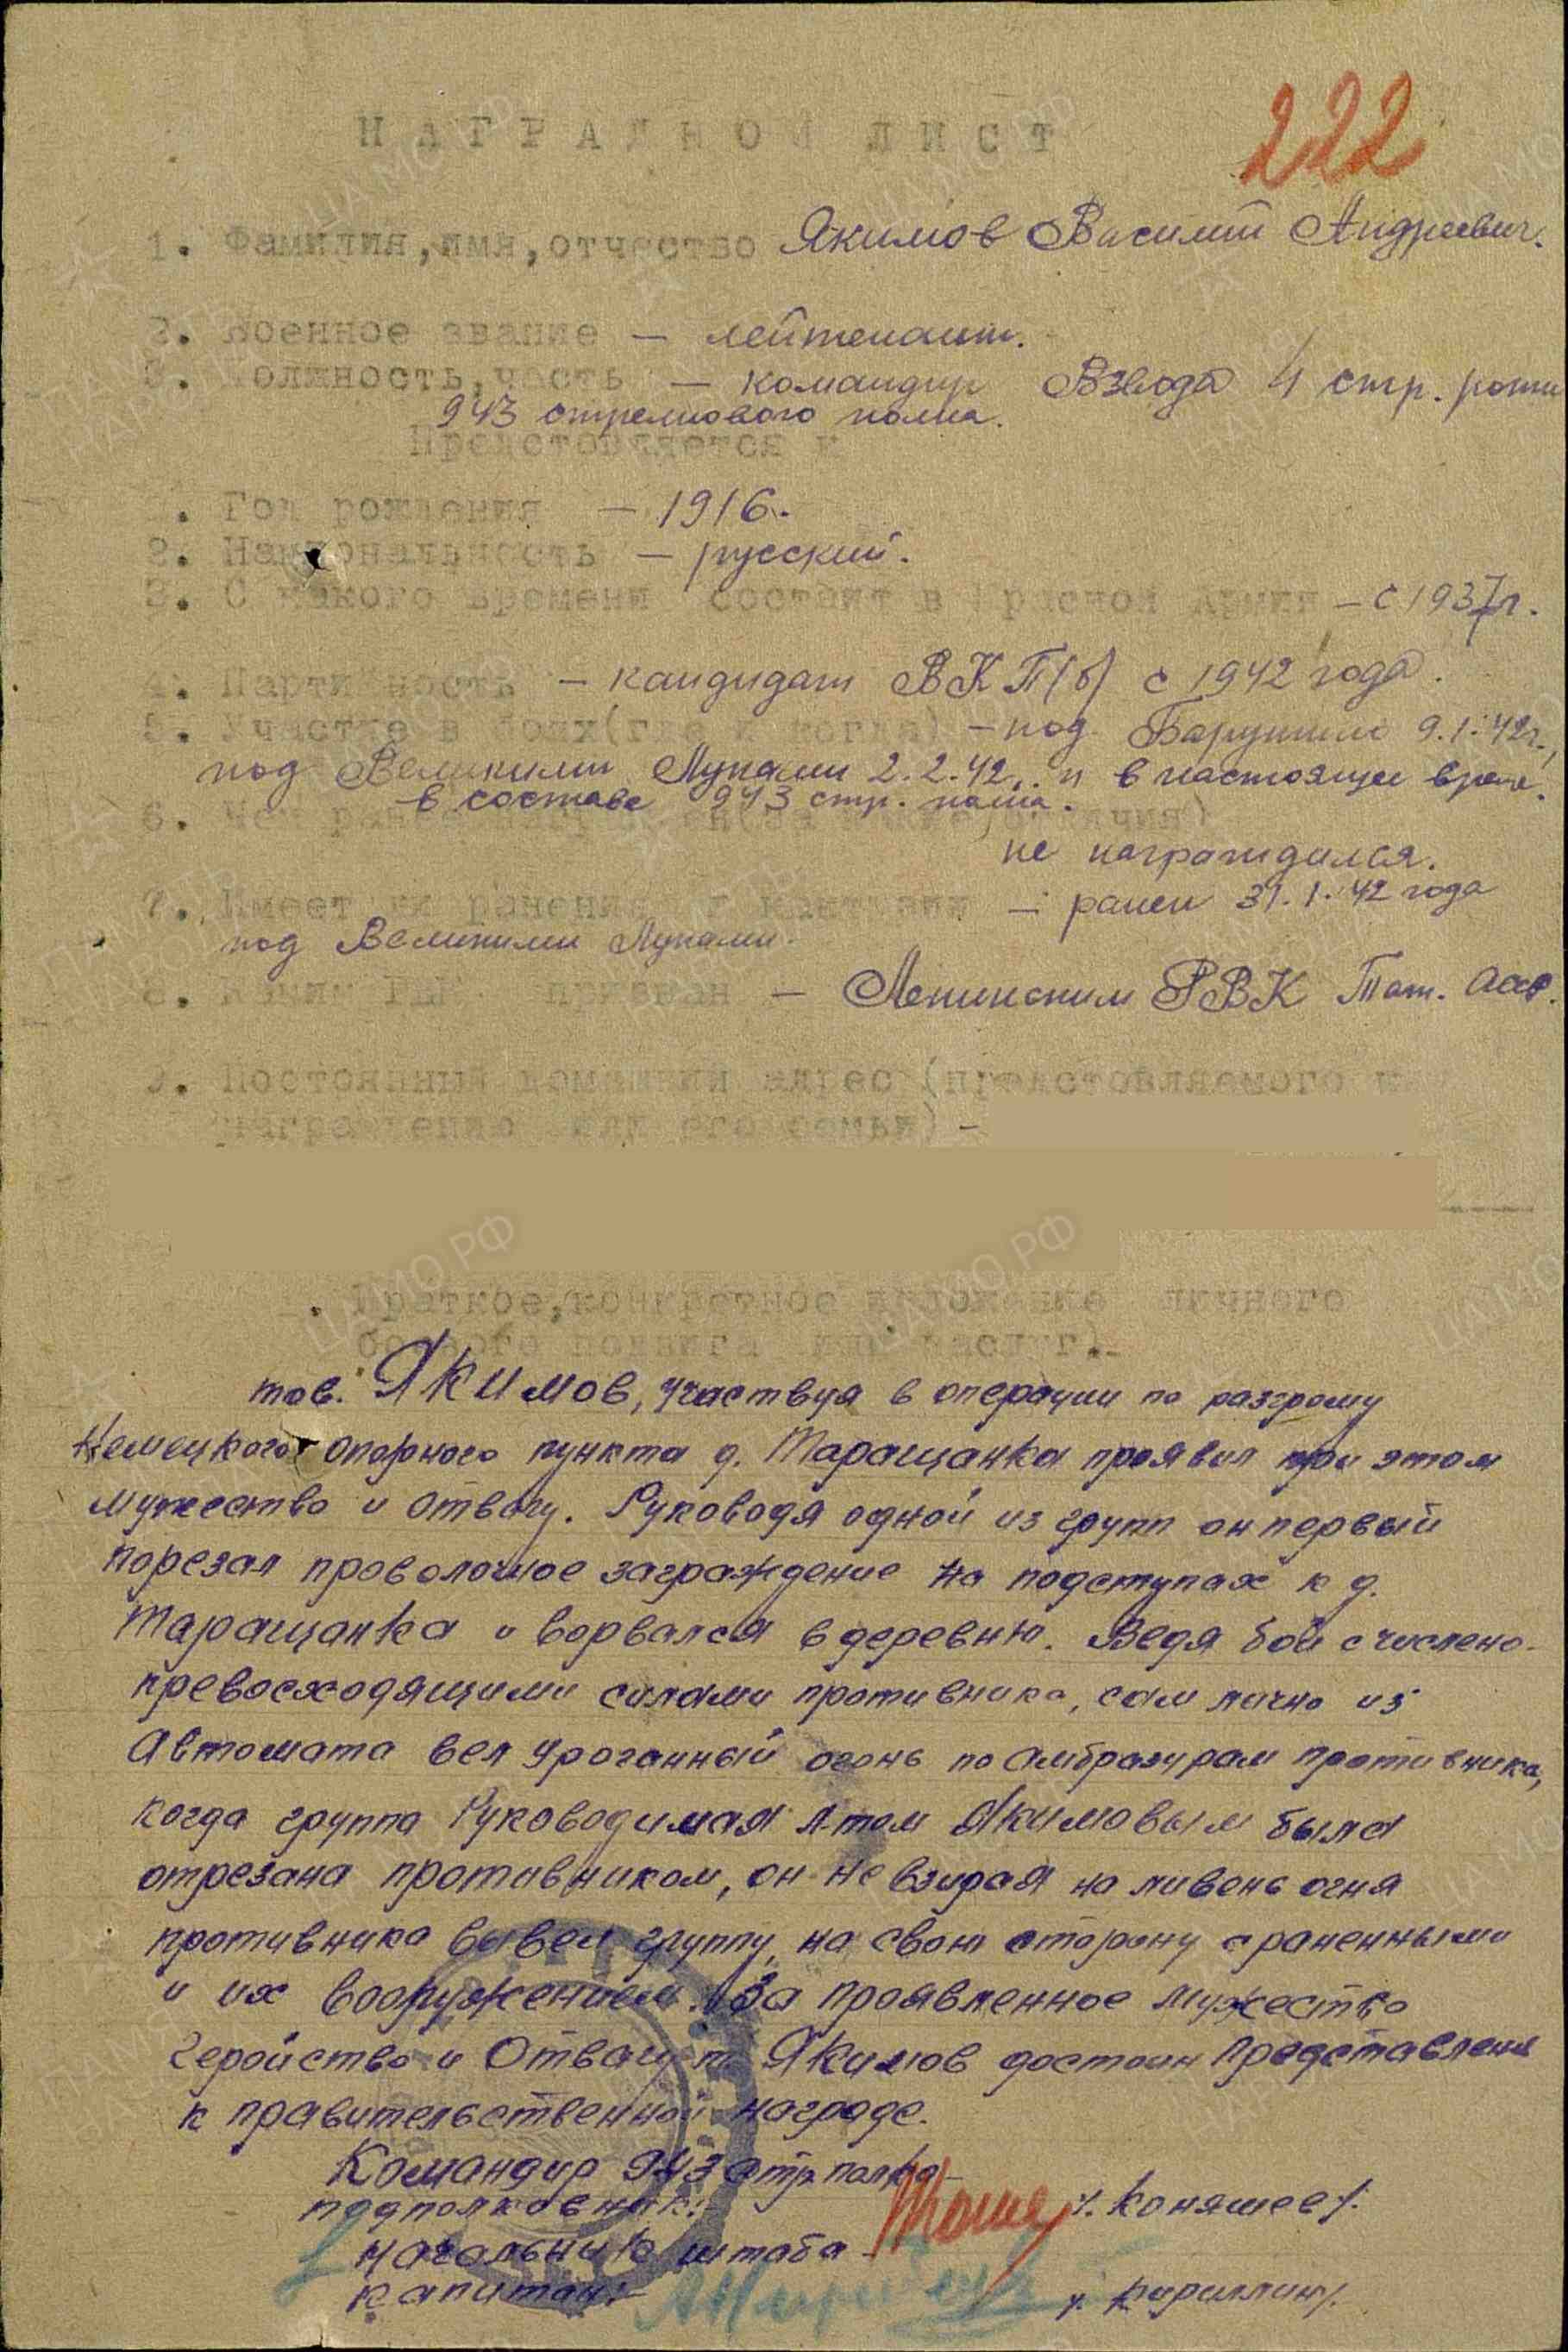 222
НАГРАДНОЙ ЛИСТ
1. Фамилия, имя, отчество Якимов Василий Андреевич.
2. Военное звание — лейтенант.
3. Должность, часть — командир взвода 4 стр. роты
943 стрелкового полка.
Предстовляется к
1. Год рождения — 1916.
2. Национальность — русский.
3. С какого времени состоит в Красной Армии — с 1937г.
4. Партийность — кандидат ВКП(б) с 1942 года.
5. Участие в боях (где и когда) — под 9.1.42г.,
под Великими Луками 2.2.42. и в настоящее время.
в составе 943 стр. полка.
6. Чем ранее награжден (за какие отличия)
не награждался.
7. Имеет ли ранения и контузии — ранен 31.1.42 года
под Великими Луками.
8. Каким РВК призван — Ленинским РВК Тат. Асср.
9. Постоянный домашний адрес (предстовляемого к
награждению или его семьи) —
Краткое, конкретное изложение личного
боевого подвига или заслуг).
тов. Якимов, участвуя в операции по разгрому
Немецкого опорного пункта д. Таращанка проявил при этом
мужество и отвагу. Руководя одной из групп он первый
порезал проволочное заграждение на подступах к д.
Таращанка и ворвался в деревню. Ведя бой с числено-
превосходящими силами противника, сам лично из
Автомата вел ураганный огонь по амбразурам противника,
когда группа Руководимая л-том Якимовым была
отрезана противником, он не взирая на ливень огня
противника вывел группу на свою сторону с раненными
и их вооружением. За проявленное мужество
Геройство и Отвагу т. Якимов достоин представления
к правительственной награде.
Командир 943 стр. полка —
подполковник: — /. Коняшев /.
Начальник штаба —
капитан: — /. Кириллин /.
ЦАМО РФ